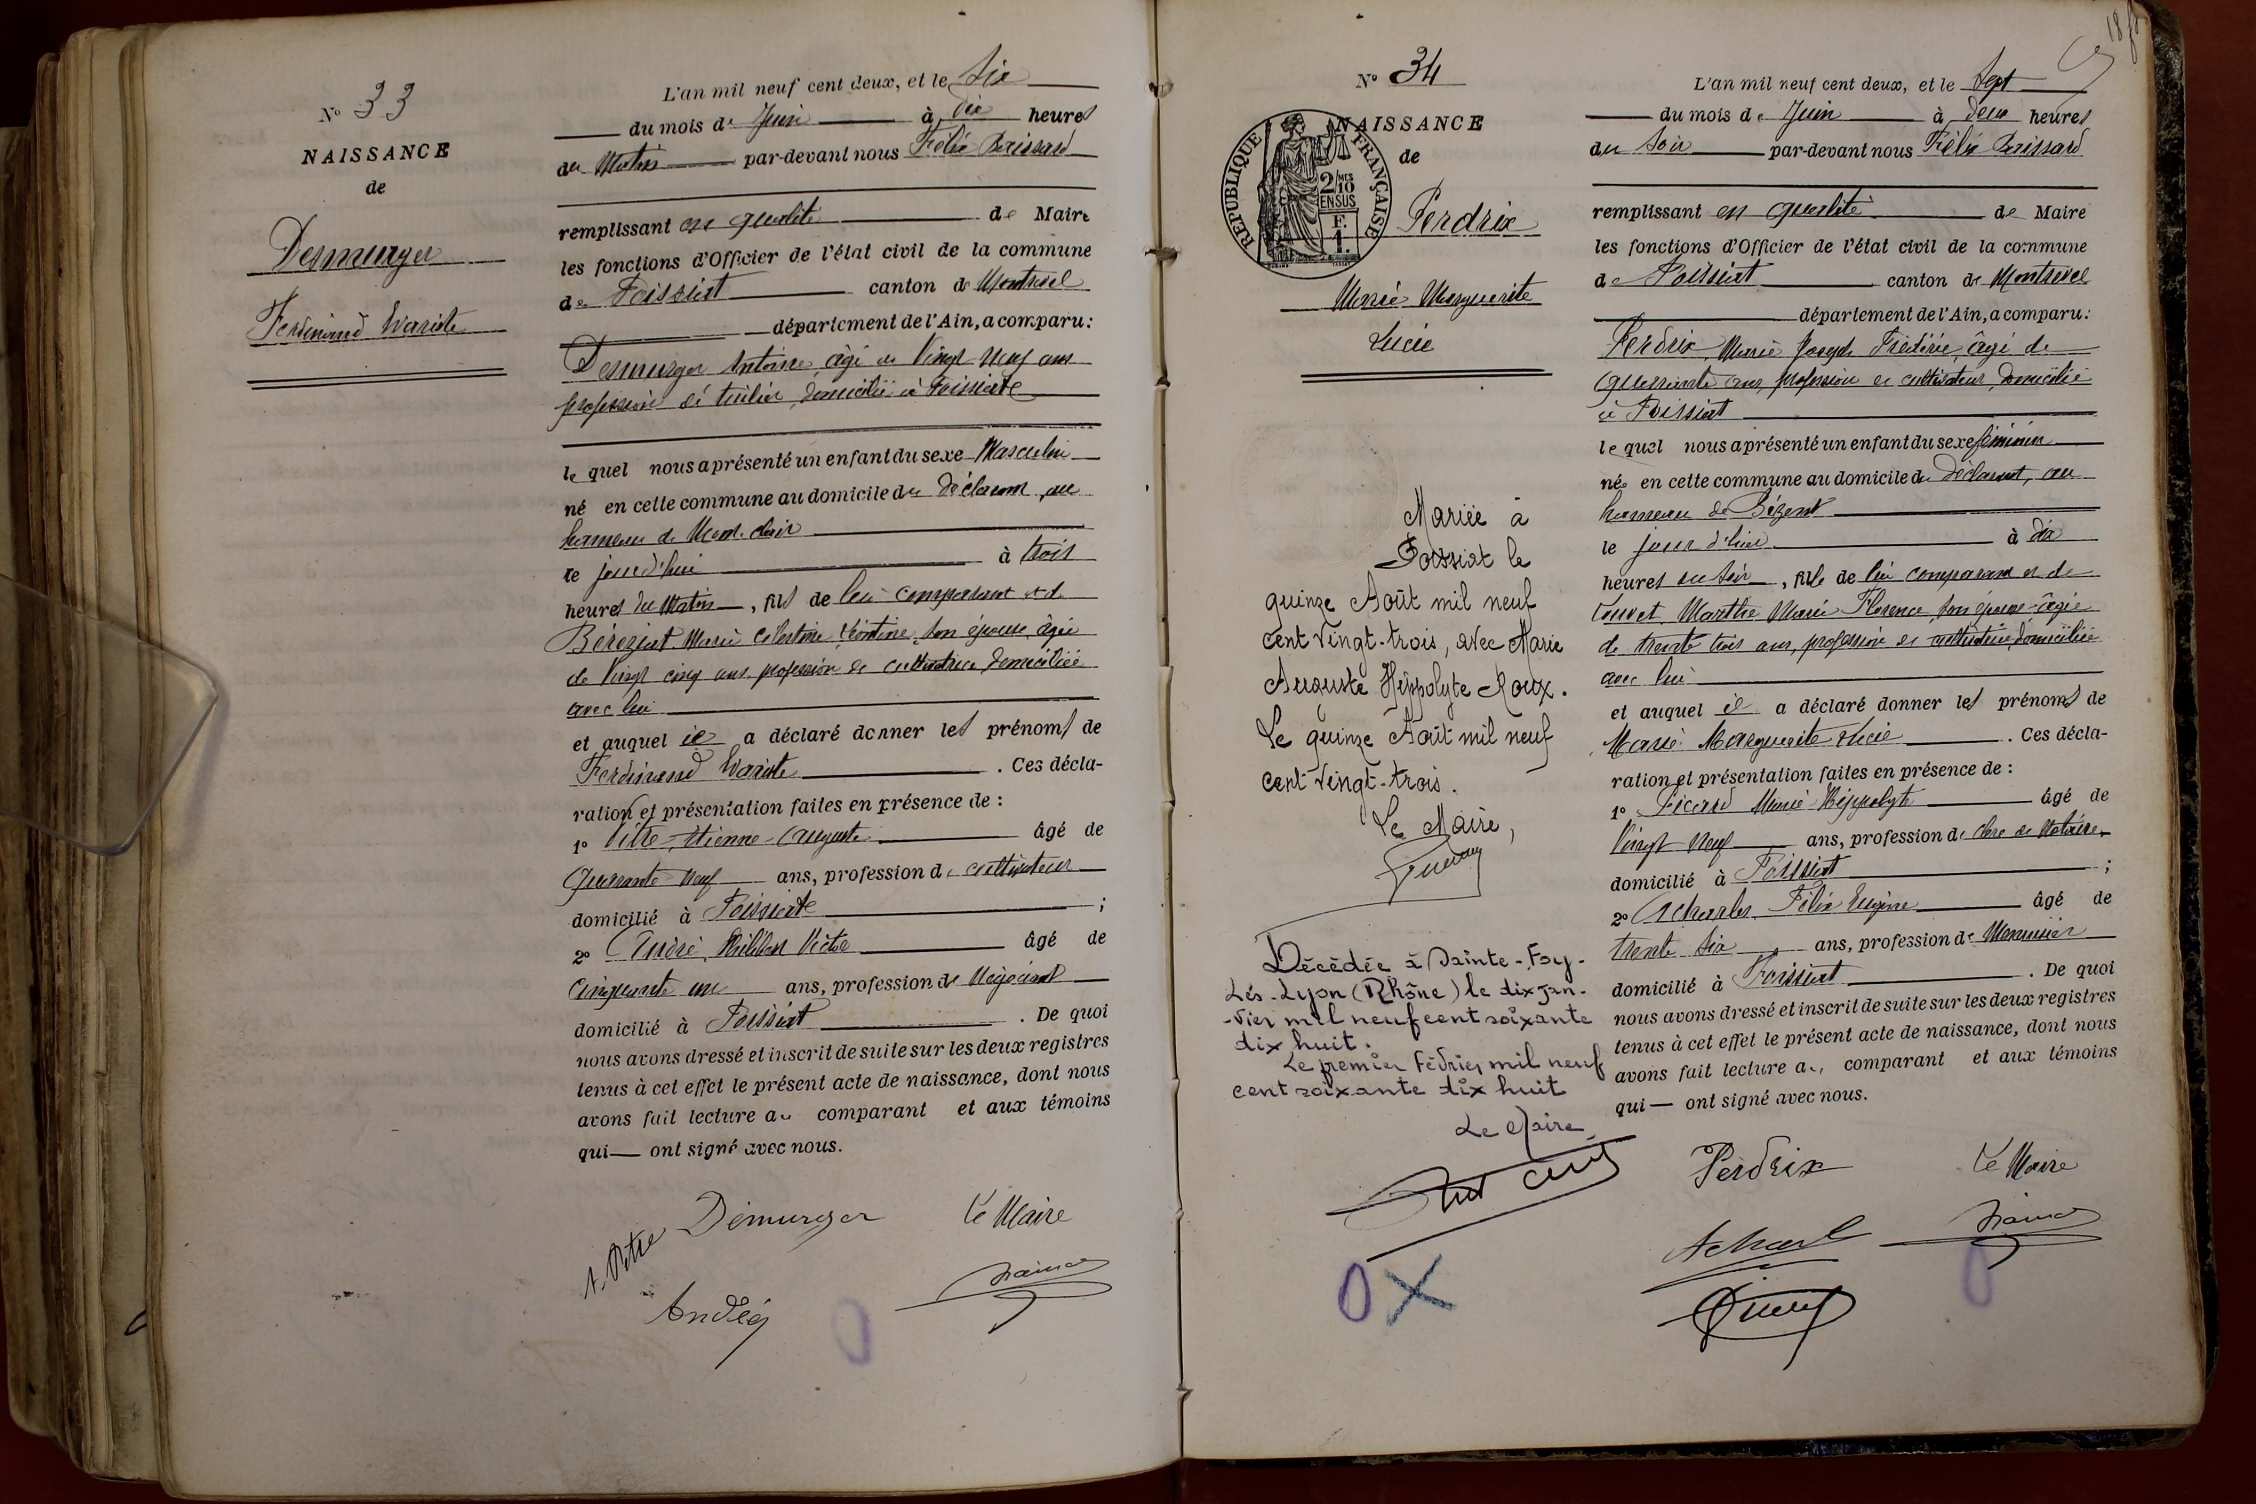 N° 33
NAISSANCE
de
Desmurger
Ferdinand Variste
L'an mil neuf cent deux, et le Six
du mois de Juin à dix heures
du Matin par-devant nous Félix Brissard
remplissant en qualité de Maire
les fonctions d'Officier de l'état civil de la commune
de Foissiat canton de Montrevel
département de l'Ain, a comparu :
Desmurger Antoine, âgé de Vingt Neuf ans
profession de tuilier, domicilié à Foissiat
le quel nous a présenté un enfant du sexe Masculin
né en cette commune au domicile du déclarant, au
hameau de
le jourd'hui à trois
heures du Matin, fils de lui comparant et de
Béréziat Marie Célestine Léontine, son épouse, âgée
de Vingt cinq ans, profession de cultivatrice, domiciliée
avec lui
et auquel il a déclaré donner les prénoms de
Ferdinand Variste. Ces décla-
ration et présentation faites en présence de :
1° Vitre Etienne Auguste âgé de
Quarante Neuf ans, profession de cultivateur
domicilié à Foissiat ;
2° André Philibert Victor âgé de
Cinquante un ans, profession de Négociant
domicilié à Foissiat. De quoi
nous avons dressé et inscrit de suite sur les deux registres
tenus à cet effet le présent acte de naissance, dont nous
avons fait lecture au comparant et aux témoins
qui — ont signé avec nous.
Démurger Le Maire
A. Vitre
André
18
N° 34
NAISSANCE
de
REPUBLIQUE FRANÇAISE
2/10 MES
EN SUS
F.
1.
Perdrix
Marie Marguerite
Lucie
Mariée à
Foissiat le
quinze Août mil neuf
cent vingt-trois, avec Marie
Auguste Hippolyte Roux.
Le quinze Août mil neuf
cent vingt-trois.
Le Maire,
Décédée à Sainte-Foy-
Lés-Lyon (Rhône) le dix jan-
-vier mil neuf cent soixante
dix huit.
Le premier Février mil neuf
cent soixante dix huit
Le Maire
L'an mil neuf cent deux, et le Sept
du mois de Juin à deux heures
du soir par-devant nous Félix Brissard
remplissant en qualité de Maire
les fonctions d'Officier de l'état civil de la commune
de Foissiat canton de Montrevel
département de l'Ain, a comparu :
Perdrix, Marie Joseph Frédéric, âgé de
quarante ans, profession de cultivateur, domicilié
à Foissiat
le quel nous a présenté un enfant du sexe féminin
née en cette commune au domicile du déclarant, au
hameau de Bézent
le jour d'hier à dix
heures du soir, fille de lui comparant et de
Convert Marthe Marie Florence, son épouse âgée
de trente trois ans, profession de cultivatrice, domiciliée
avec lui
et auquel il a déclaré donner les prénoms de
Marie Marguerite Lucie. Ces décla-
ration et présentation faites en présence de :
1° Picard Marie Hippolyte âgé de
Vingt Neuf ans, profession de clerc de Notaire
domicilié à Foissiat ;
2° Acharles Félix Eugène âgé de
trente six ans, profession de Menuisier
domicilié à Foissiat. De quoi
nous avons dressé et inscrit de suite sur les deux registres
tenus à cet effet le présent acte de naissance, dont nous
avons fait lecture au comparant et aux témoins
qui — ont signé avec nous.
Perdrix Le Maire